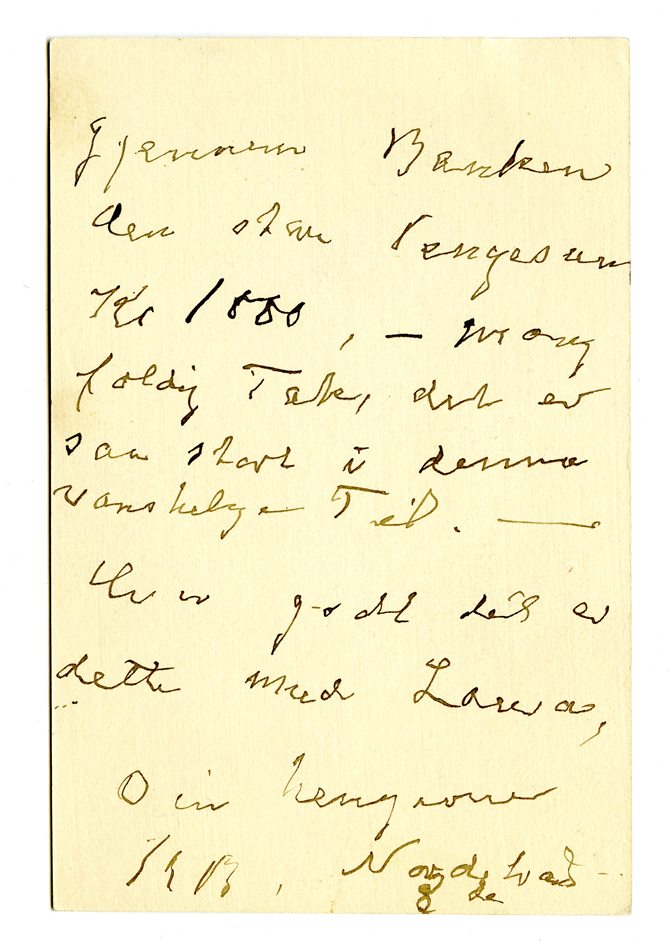 Gjennem Banken
den store Pengesum
Kr 1000, – mang
foldig Tak, det er
saa stort i denne
vanskelige Tid. —
Hvor godt det er
dette med Laura,
Din hengivne